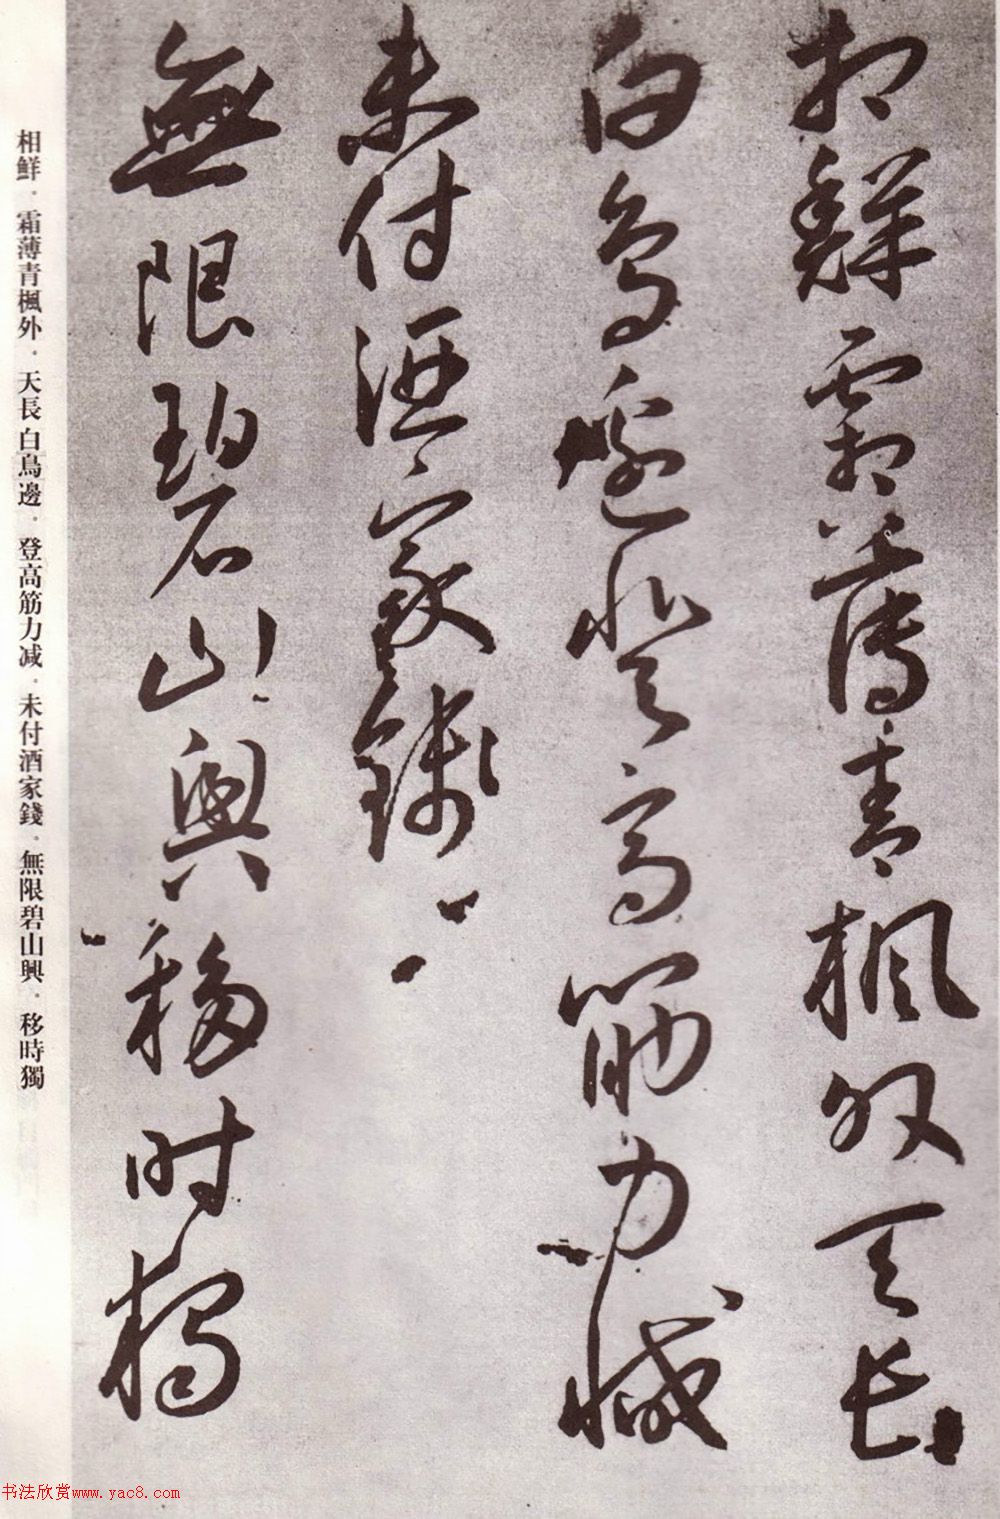 相鮮霜薄青楓外天長
白鳥邊登高筋力减
未付酒家錢
無限碧山興移時獨
相鮮。霜薄青楓外。天長白鳥邊。登高筋力减。未付酒家錢。無限碧山興。移時獨
书法欣赏www.yac8.com